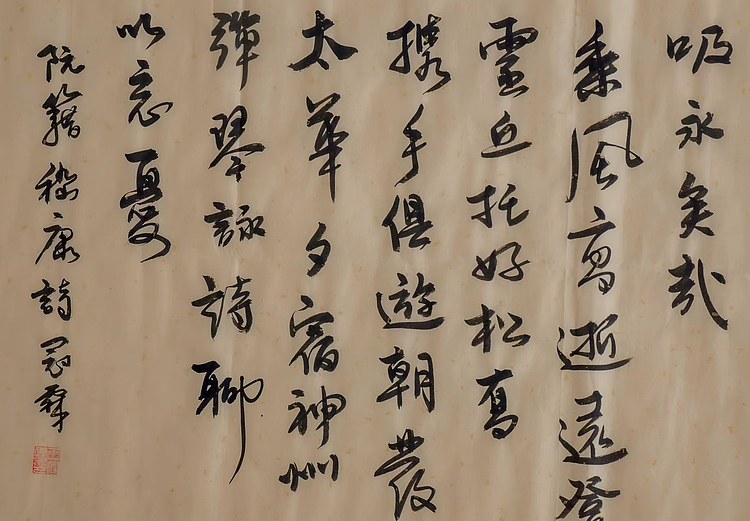 吸永矣哉
乘風高逝遠登
靈丘托好松喬
携手俱遊朝發
太華夕宿神州
彈琴詠詩聊
以忘憂
阮籍嵇康詩